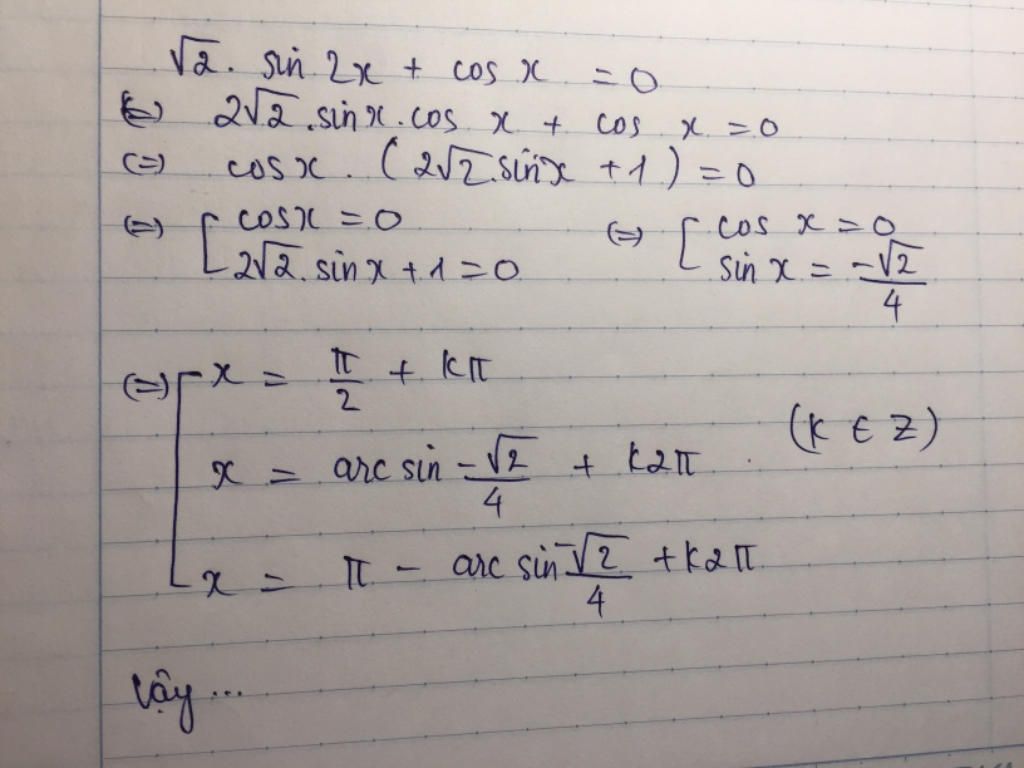 √2. sin 2x + cos x = 0
(=) 2√2.sinx.cos x + cos x = 0
(=) cosx. (2√2.sinx + 1) = 0
(=) [ cosx = 0 (=) [ cos x = 0
2√2.sinx + 1 = 0 sin x = -√2/4
(=) [ x = π/2 + kπ
x = arc sin -√2/4 + k2π (k ∈ Z)
x = π - arc sin -√2/4 + k2π
Vậy ...